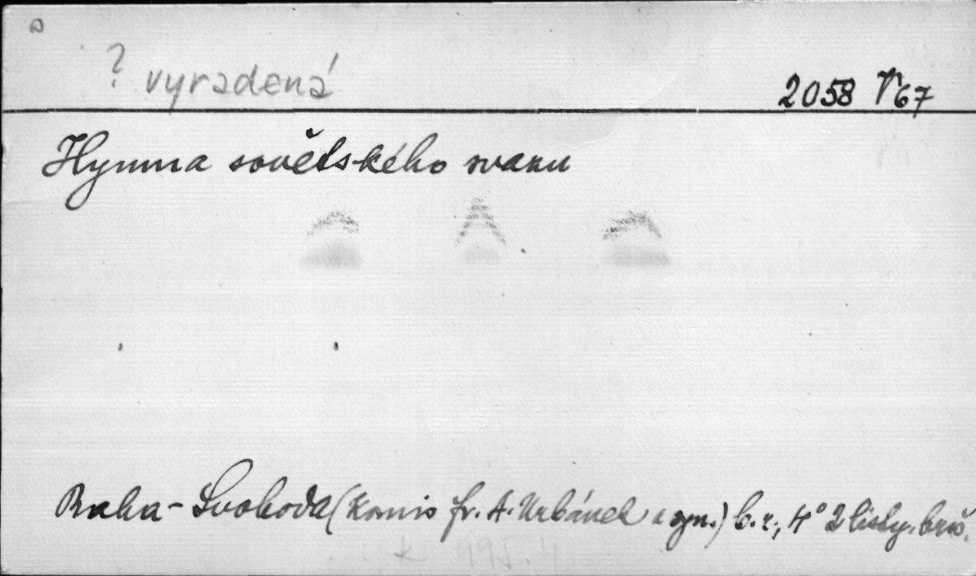 ? vyradená
2058 V 67
Hymna sovětského svazu
Praha - Svoboda (Komis fr. A. Urbánek a syn.) b. r., 4° 2 listy. brož.